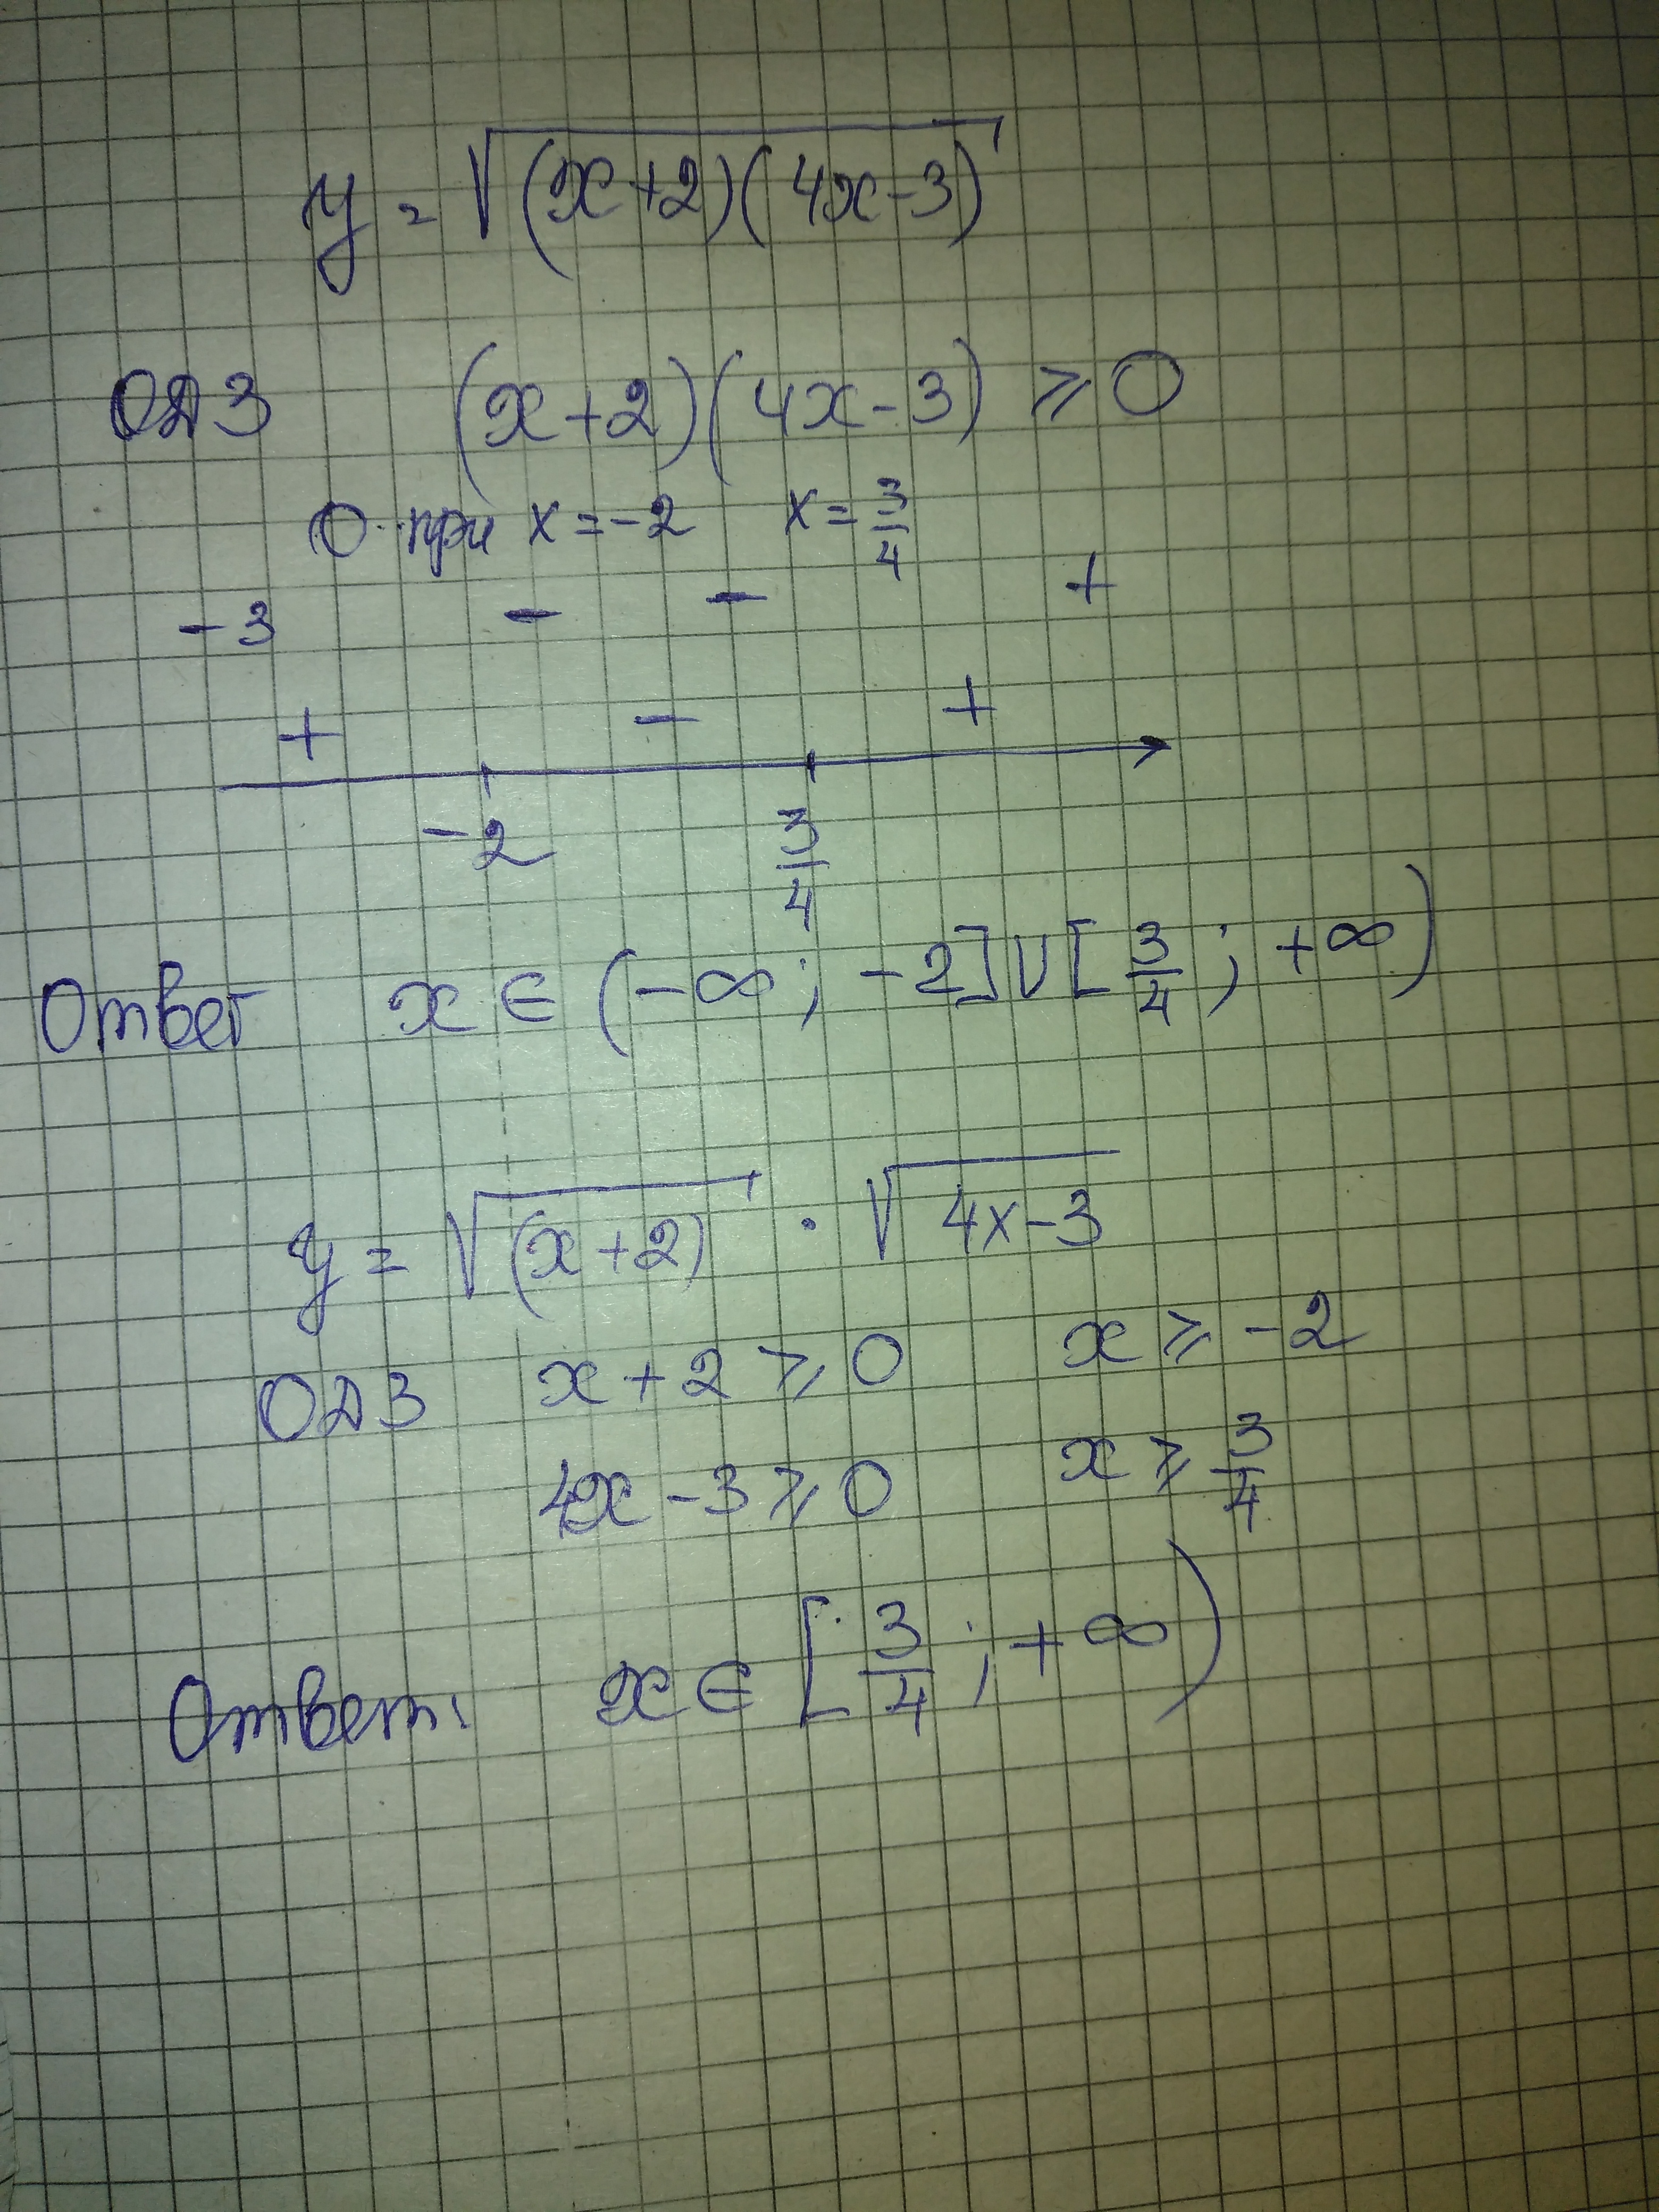 y = √(x+2)(4x-3)
ОДЗ (x+2)(4x-3) ⩾ 0
0 при x = -2 x = 3/4
-3 - - +
+ - +
-2 3/4
Ответ x ∈ (-∞; -2] U [3/4; +∞)
y = √(x+2) · √4x-3
ОДЗ x+2 ⩾ 0 x ⩾ -2
4x-3 ⩾ 0 x ⩾ 3/4
Ответ: x ∈ [3/4; +∞)